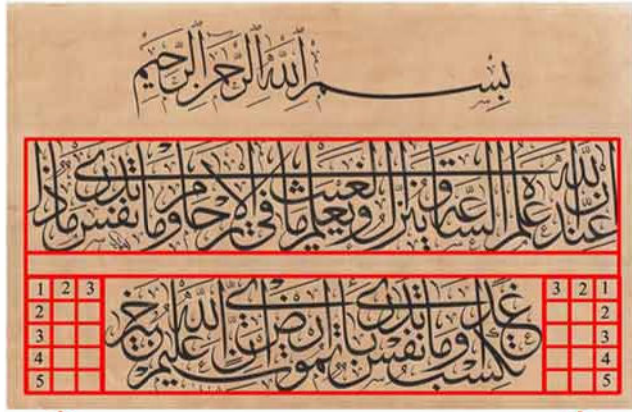 بسم الله الرحمن الرحيم
إن الله عنده علم الساعة وينزل الغيث ويعلم ما في الأرحام وما تدري نفس ماذا
تكسب غدا وما تدري نفس بأي أرض تموت إن الله عليم خبير
1 2 3 3 2 1
2 2
3 3
4 4
5 5